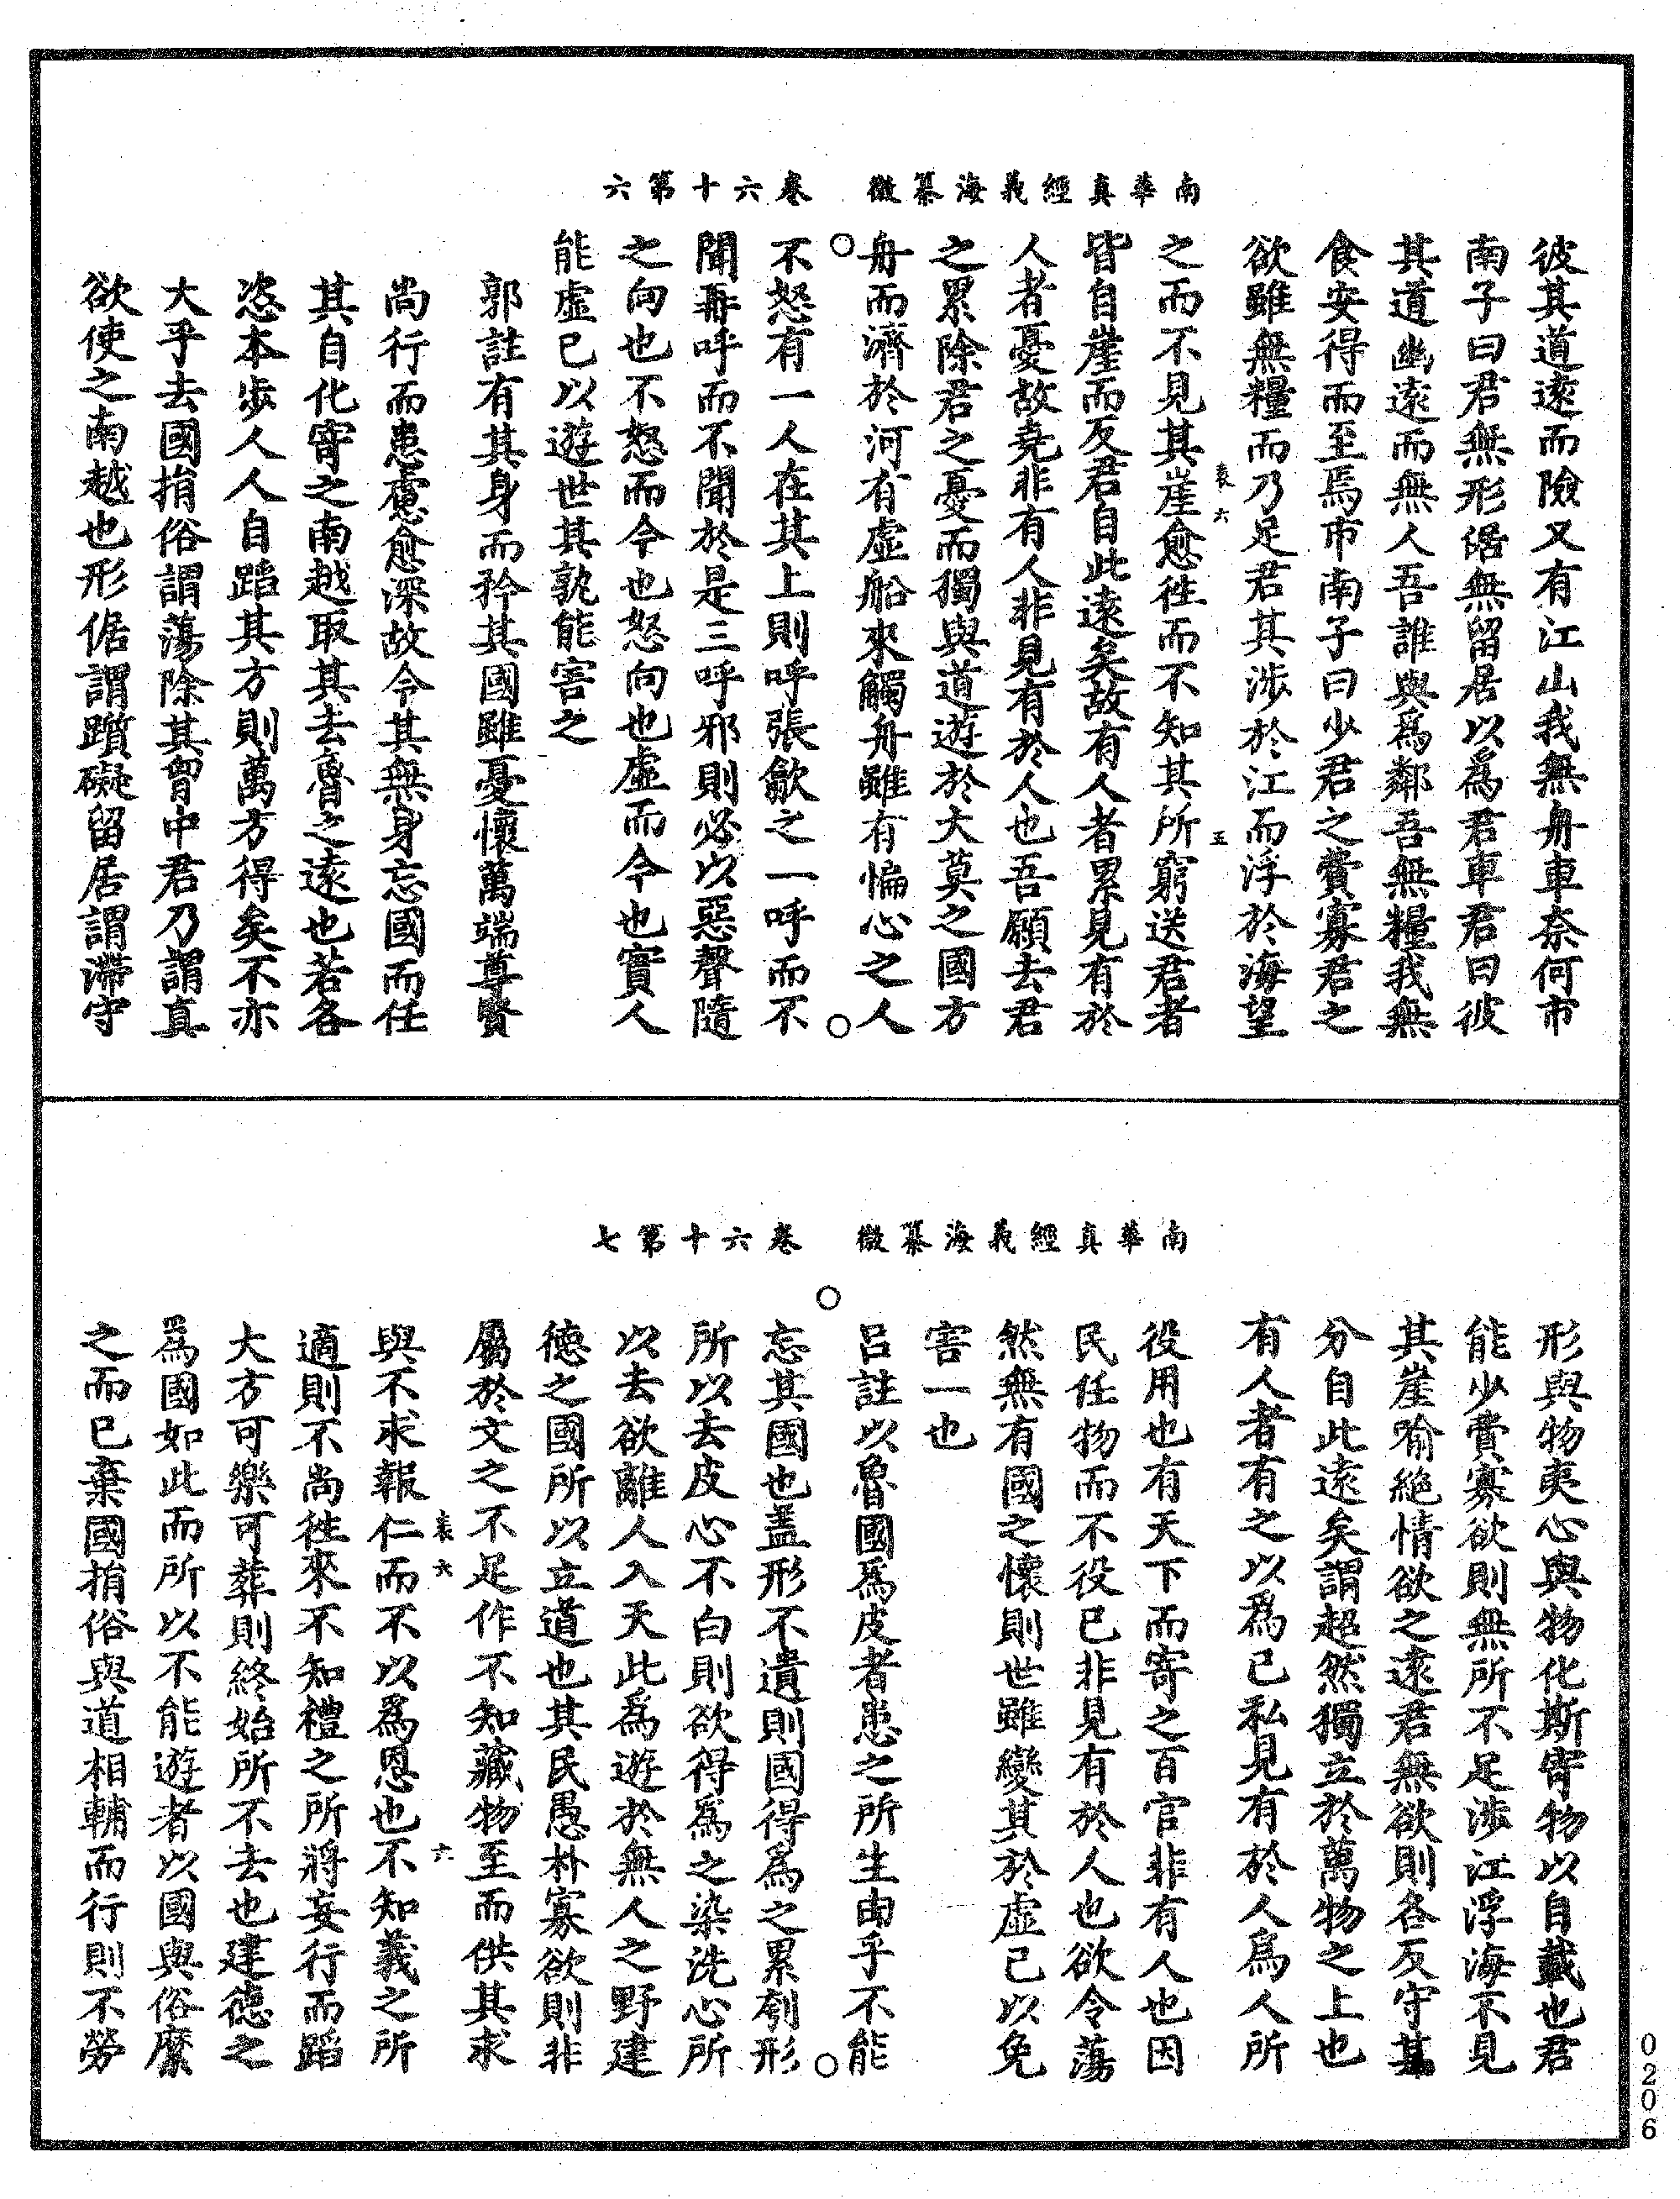 南華真經義海纂微　卷六十六第六
彼其道遠而險又有江山我無舟車奈何市
南子曰君無形倨無留居以爲君車君曰彼
其道幽遠而無人吾誰與爲鄰吾無糧我無
食安得而至焉市南子曰少君之費寡君之
欲雖無糧而乃足君其涉於江而浮於海望
表六　五
之而不見其崖愈往而不知其所窮送君者
皆自崖而反君自此遠矣故有人者累見有於
人者憂故堯非有人非見有於人也吾願去君
之累除君之憂而獨與道遊於大莫之國方
舟而濟於河有虛船來觸舟雖有惼心之人
不怒有一人在其上則呼張歙之一呼而不
聞再呼而不聞於是三呼邪則必以惡聲隨
之向也不怒而今也怒向也虛而今也實人
能虛己以遊世其孰能害之
郭註有其身而矜其國雖憂懷萬端尊賢
尚行而患慮愈深故令其無身忘國而任
其自化寄之南越取其去魯之遠也若各
恣本步人人自蹈其方則萬方得矣不亦
大乎去國捐俗謂蕩除其胷中君乃謂真
欲使之南越也形倨謂躓礙留居謂滯守
南華真經義海纂微　卷六十六第七
形與物夷心與物化斯寄物以自載也君
能少費寡欲則無所不足涉江浮海不見
其崖喻絕情欲之遠君無欲則各反守其
分自此遠矣謂超然獨立於萬物之上也
有人者有之以爲己私見有於人爲人所
役用也有天下而寄之百官非有人也因
民任物而不役己非見有於人也欲令蕩
然無有國之懷則世雖變其於虛己以免
害一也
呂註以魯國爲皮者患之所生由乎不能
忘其國也蓋形不遺則國得爲之累刳形
所以去皮心不白則欲得爲之染洗心所
以去欲離人入天此爲遊於無人之野建
德之國所以立道也其民愚朴寡欲則非
屬於文之不足作不知藏物至而供其求
表六　六
與不求報仁而不以爲恩也不知義之所
適則不尚往來不知禮之所將妄行而蹈
大方可樂可葬則終始所不去也建德之
爲國如此而所以不能遊者以國與俗縻
之而已棄國捐俗與道相輔而行則不勞
0206